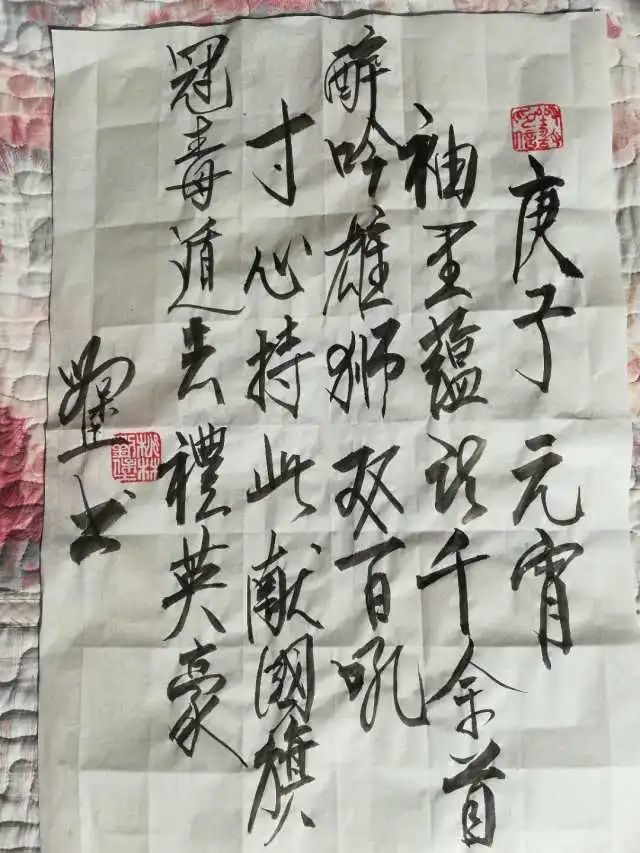 庚子元宵
袖里蕴诗千余首
醉吟雄狮双百吼
寸心持此献國旗
冠毒遁去禮英豪
书